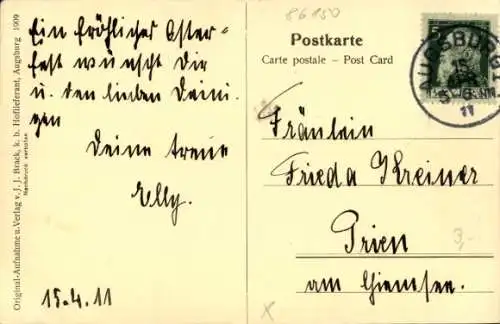 86150
Ein fröhliches Oster-
fest wünscht Dir
u. den lieben Deini-
gen
Deine treue
Elly.
15.4.11
Original-Aufnahme u. Verlag v. J. J. Brack, k. b. Hoflieferant, Augsburg 1909
Nachdruck verboten
Postkarte
Carte postale – Post Card
5
AUGSBURG
11
Fräulein
Frieda Kreiner
Prien
am Chiemsee.
3,-
x